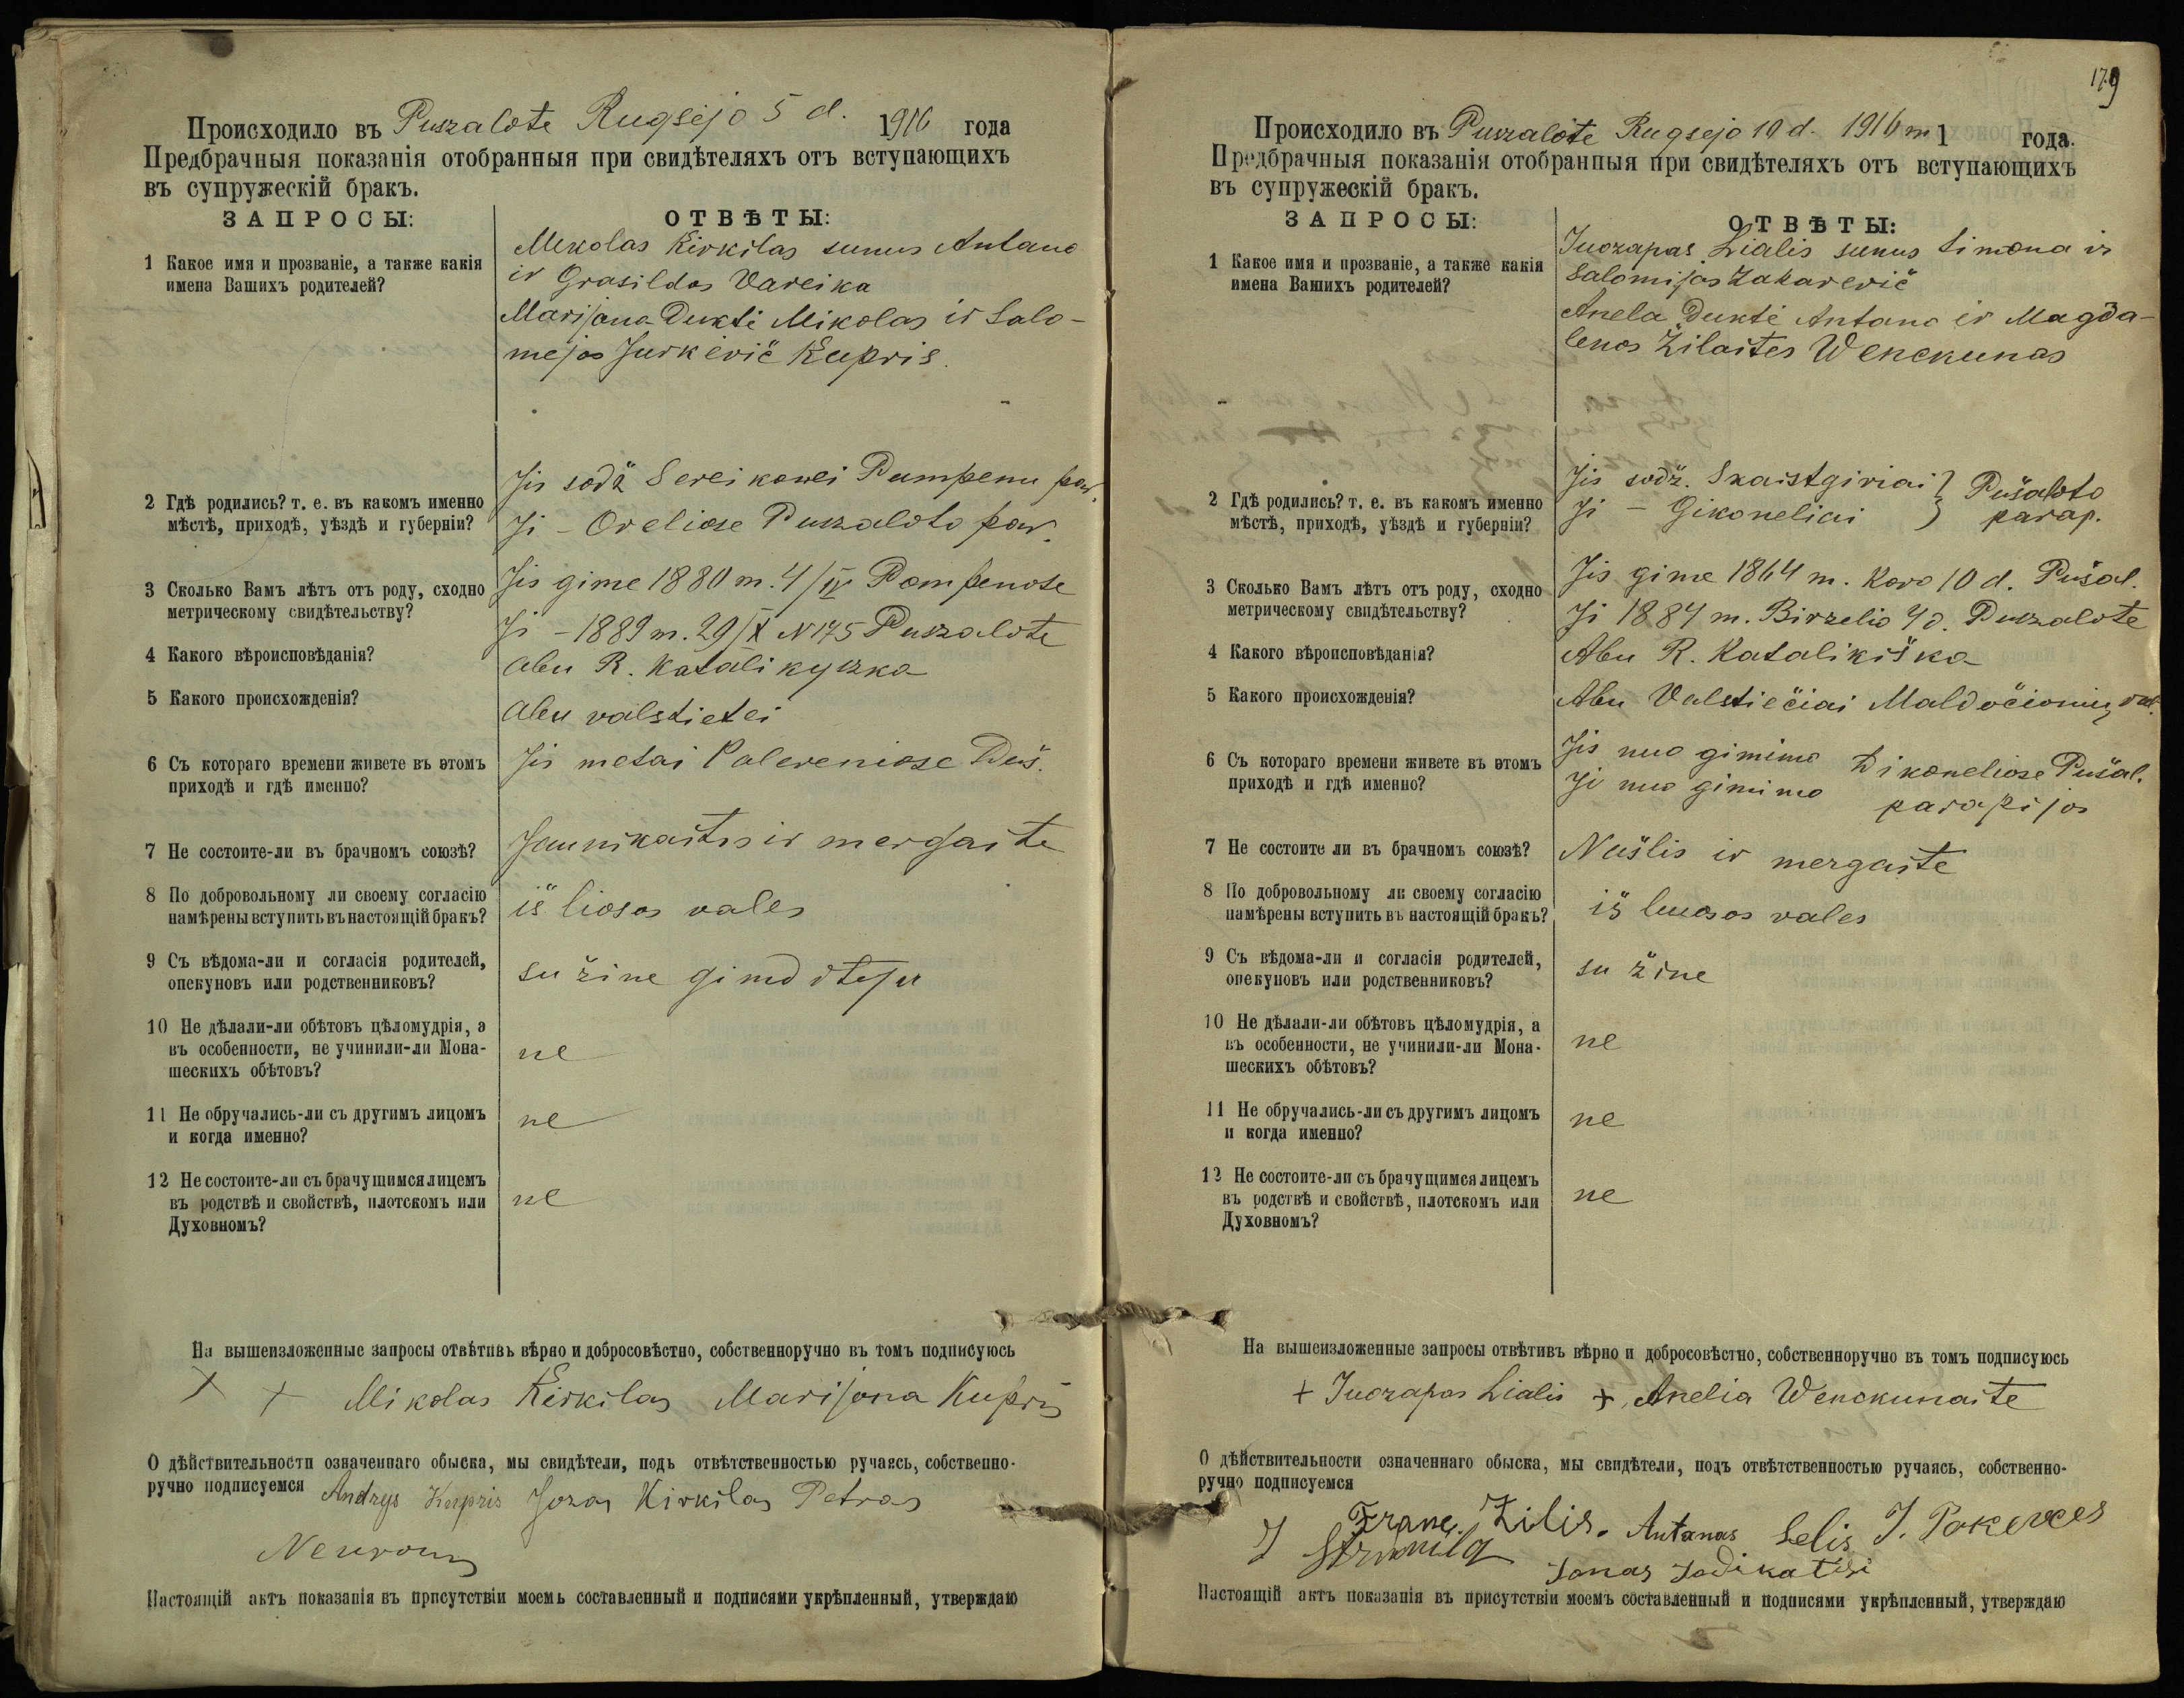 Происходило въ Puszalote Rugsejo 5 d. 1916 года
Предбрачныя показанія отобранныя при свидѣтеляхъ отъ вступающихъ
въ супружескій бракъ.
ЗАПРОСЫ:
ОТВѢТЫ:
1 Какое имя и прозваніе, а также какія
имена Вашихъ родителей?
Mikolas Kirkilas sunus Antano
ir Grasildos Vareika
Marijona Dukti Mikolas ir Salo-
mejos Jurkievič Kupris.
2 Гдѣ родились? т. е. въ какомъ именно
мѣстѣ, приходѣ, уѣздѣ и губерніи?
Jis sodž Sereikonei Pumpenu par.
Ji - Oreliose Puszaloto par.
3 Сколько Вамъ лѣтъ отъ роду, сходно
метрическому свидѣтельству?
Jis gime 1880 m. 4/IV Pompenose
Ji - 1889 m. 29/X N 175 Puszalote
4 Какого вѣроисповѣданія?
Abu R. Katalikyszka
5 Какого происхожденія?
Abu valstietei
6 Съ котораго времени живете въ этомъ
приходѣ и гдѣ именно?
Jis metai Paleveniose Puš.
7 Не состоите-ли въ брачномъ союзѣ?
Jaunikaitis ir mergaite
8 По добровольному ли своему согласію
намѣрены вступить въ настоящій бракъ?
iš liosos vales
9 Съ вѣдома-ли и согласія родителей,
опекуновъ или родственниковъ?
su žine gimditoju
10 Не дѣлали-ли обѣтовъ цѣломудрія, а
въ особенности, не учинили-ли Мона-
шескихъ обѣтовъ?
ne
11 Не обручались-ли съ другимъ лицомъ
и когда именно?
ne
12 Не состоите-ли съ брачущимся лицемъ
въ родствѣ и свойствѣ, плотскомъ или
Духовномъ?
ne
На вышеизложенные запросы отвѣтивъ вѣрно и добросовѣстно, собственноручно въ томъ подписуюсь
+ + Mikolas Kirkilas Marijona Kupris
О дѣйствительности означеннаго обыска, мы свидѣтели, подъ отвѣтственностью ручаясь, собственно-
ручно подписуемся Andrys Kupris Jozas Kirkilas Petras
Настоящій актъ показанія въ присутствіи моемъ составленный и подписями укрѣпленный, утверждаю
179
Происходило въ Puszalote Rugsejo 10 d. 1916 m 1 года.
Предбрачныя показанія отобранныя при свидѣтеляхъ отъ вступающихъ
въ супружескій бракъ.
ЗАПРОСЫ:
ОТВѢТЫ:
1 Какое имя и прозваніе, а также какія
имена Вашихъ родителей?
Juozapas Lialis sunus Simona ir
Salomijos Zakarevič
Anela Dukti Antano ir Magda-
lenos Žilaites Wenckunas
2 Гдѣ родились? т. е. въ какомъ именно
мѣстѣ, приходѣ, уѣздѣ и губерніи?
Jis sodž. Skaistgiriai } Pušaloto
Ji - Gikoneliai } parap.
3 Сколько Вамъ лѣтъ отъ роду, сходно
метрическому свидѣтельству?
Jis gime 1864 m. Kovo 10 d. Pušal.
Ji 1884 m. Birzelio 4 d. Puszalote
4 Какого вѣроисповѣданія?
Abu R. Katalikiška
5 Какого происхожденія?
Abu Valstiečiai Maldočionių val.
6 Съ котораго времени живете въ этомъ
приходѣ и гдѣ именно?
Jis nuo gimimo Dikoneliose Pušal.
Ji nuo gimimo parapijos
7 Не состоите ли въ брачномъ союзѣ?
Našlis ir mergaite
8 По добровольному ли своему согласію
намѣрены вступить въ настоящій бракъ?
iš luosos vales
9 Съ вѣдома-ли и согласія родителей,
опекуновъ или родственниковъ?
su žine
10 Не дѣлали-ли обѣтовъ цѣломудрія, а
въ особенности, не учинили-ли Мона-
шескихъ обѣтовъ?
ne
11 Не обручались-ли съ другимъ лицомъ
и когда именно?
ne
12 Не состоите-ли съ брачущимся лицемъ
въ родствѣ и свойствѣ, плотскомъ или
Духовномъ?
ne
На вышеизложенные запросы отвѣтивъ вѣрно и добросовѣстно, собственноручно въ томъ подписуюсь
+ Juozapas Lialis + Anelia Wenckunaite
О дѣйствительности означеннаго обыска, мы свидѣтели, подъ отвѣтственностью ручаясь, собственно-
ручно подписуемся
Franc. Žilis. Antanas Lelis
Jonas
Настоящій актъ показанія въ присутствіи моемъ составленный и подписями укрѣпленный, утверждаю